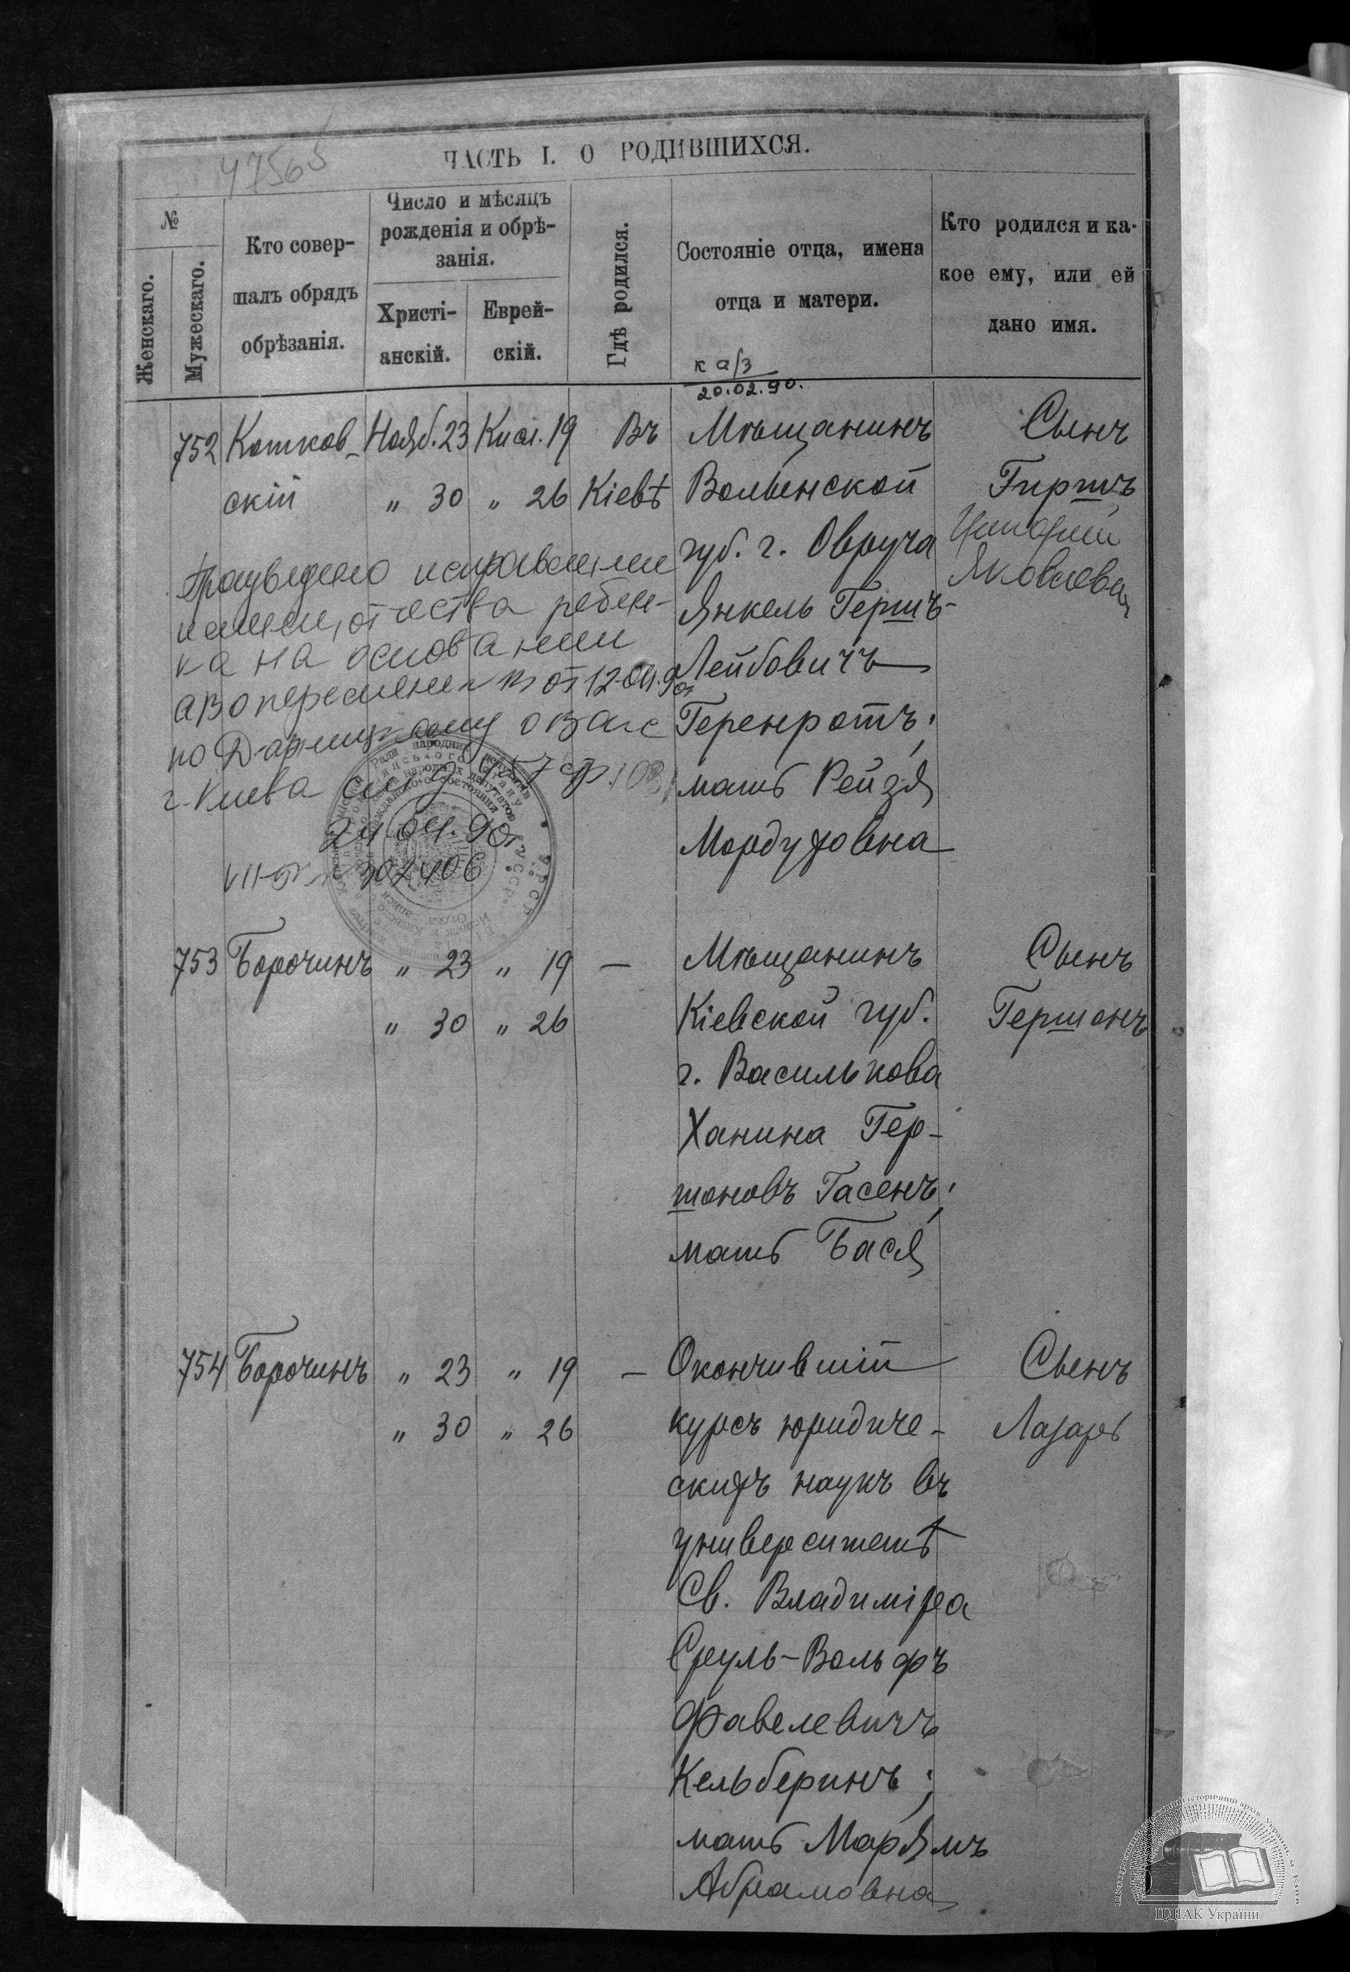 47565
ЧАСТЬ I. О РОДИВШИХСЯ.
№
Женскаго.
Мужескаго.
Кто совер-
шалъ обрядъ
обрѣзанія.
Число и мѣсяцъ
рожденія и обрѣ-
занія.
Христі-
анскій.
Еврей-
скій.
Гдѣ родился.
Состояніе отца, имена
отца и матери.
Кто родился и ка-
кое ему, или ей
дано имя.
к а/з
20.02.90.
752 Котков- Нояб. 23 Кисл. 19 Въ Мѣщанинъ Сынъ
скій " 30 " 26 Кіевѣ Волынской Гиршъ
губ. г. Овруча Григорий
Яковлевич
Янкель Гершъ-
Лейбовичъ
Геренротъ;
мать Рейзя
Мордуховна
Произведено исправление
имени, отчества ребен-
ка на основании
а/з о перемене № от 12.04.90г
по Дарницкому о ЗАГС
г. Киева
24.04.90г.
753 Борочинъ " 23 " 19 — Мѣщанинъ Сынъ
" 30 " 26 Кіевской губ. Гершонъ
г. Василькова
Ханина Гер-
шоновъ Гасенъ;
мать Бася
754 Борочинъ " 23 " 19 — Окончившій Сынъ
" 30 " 26 курсъ юридиче- Лазарь
скихъ наукъ въ
университетѣ
Св. Владиміра
Сруль-Вольфъ
Фавелевичъ
Кельберинъ;
мать Марьямъ
Абрамовна
ЦДІАК України